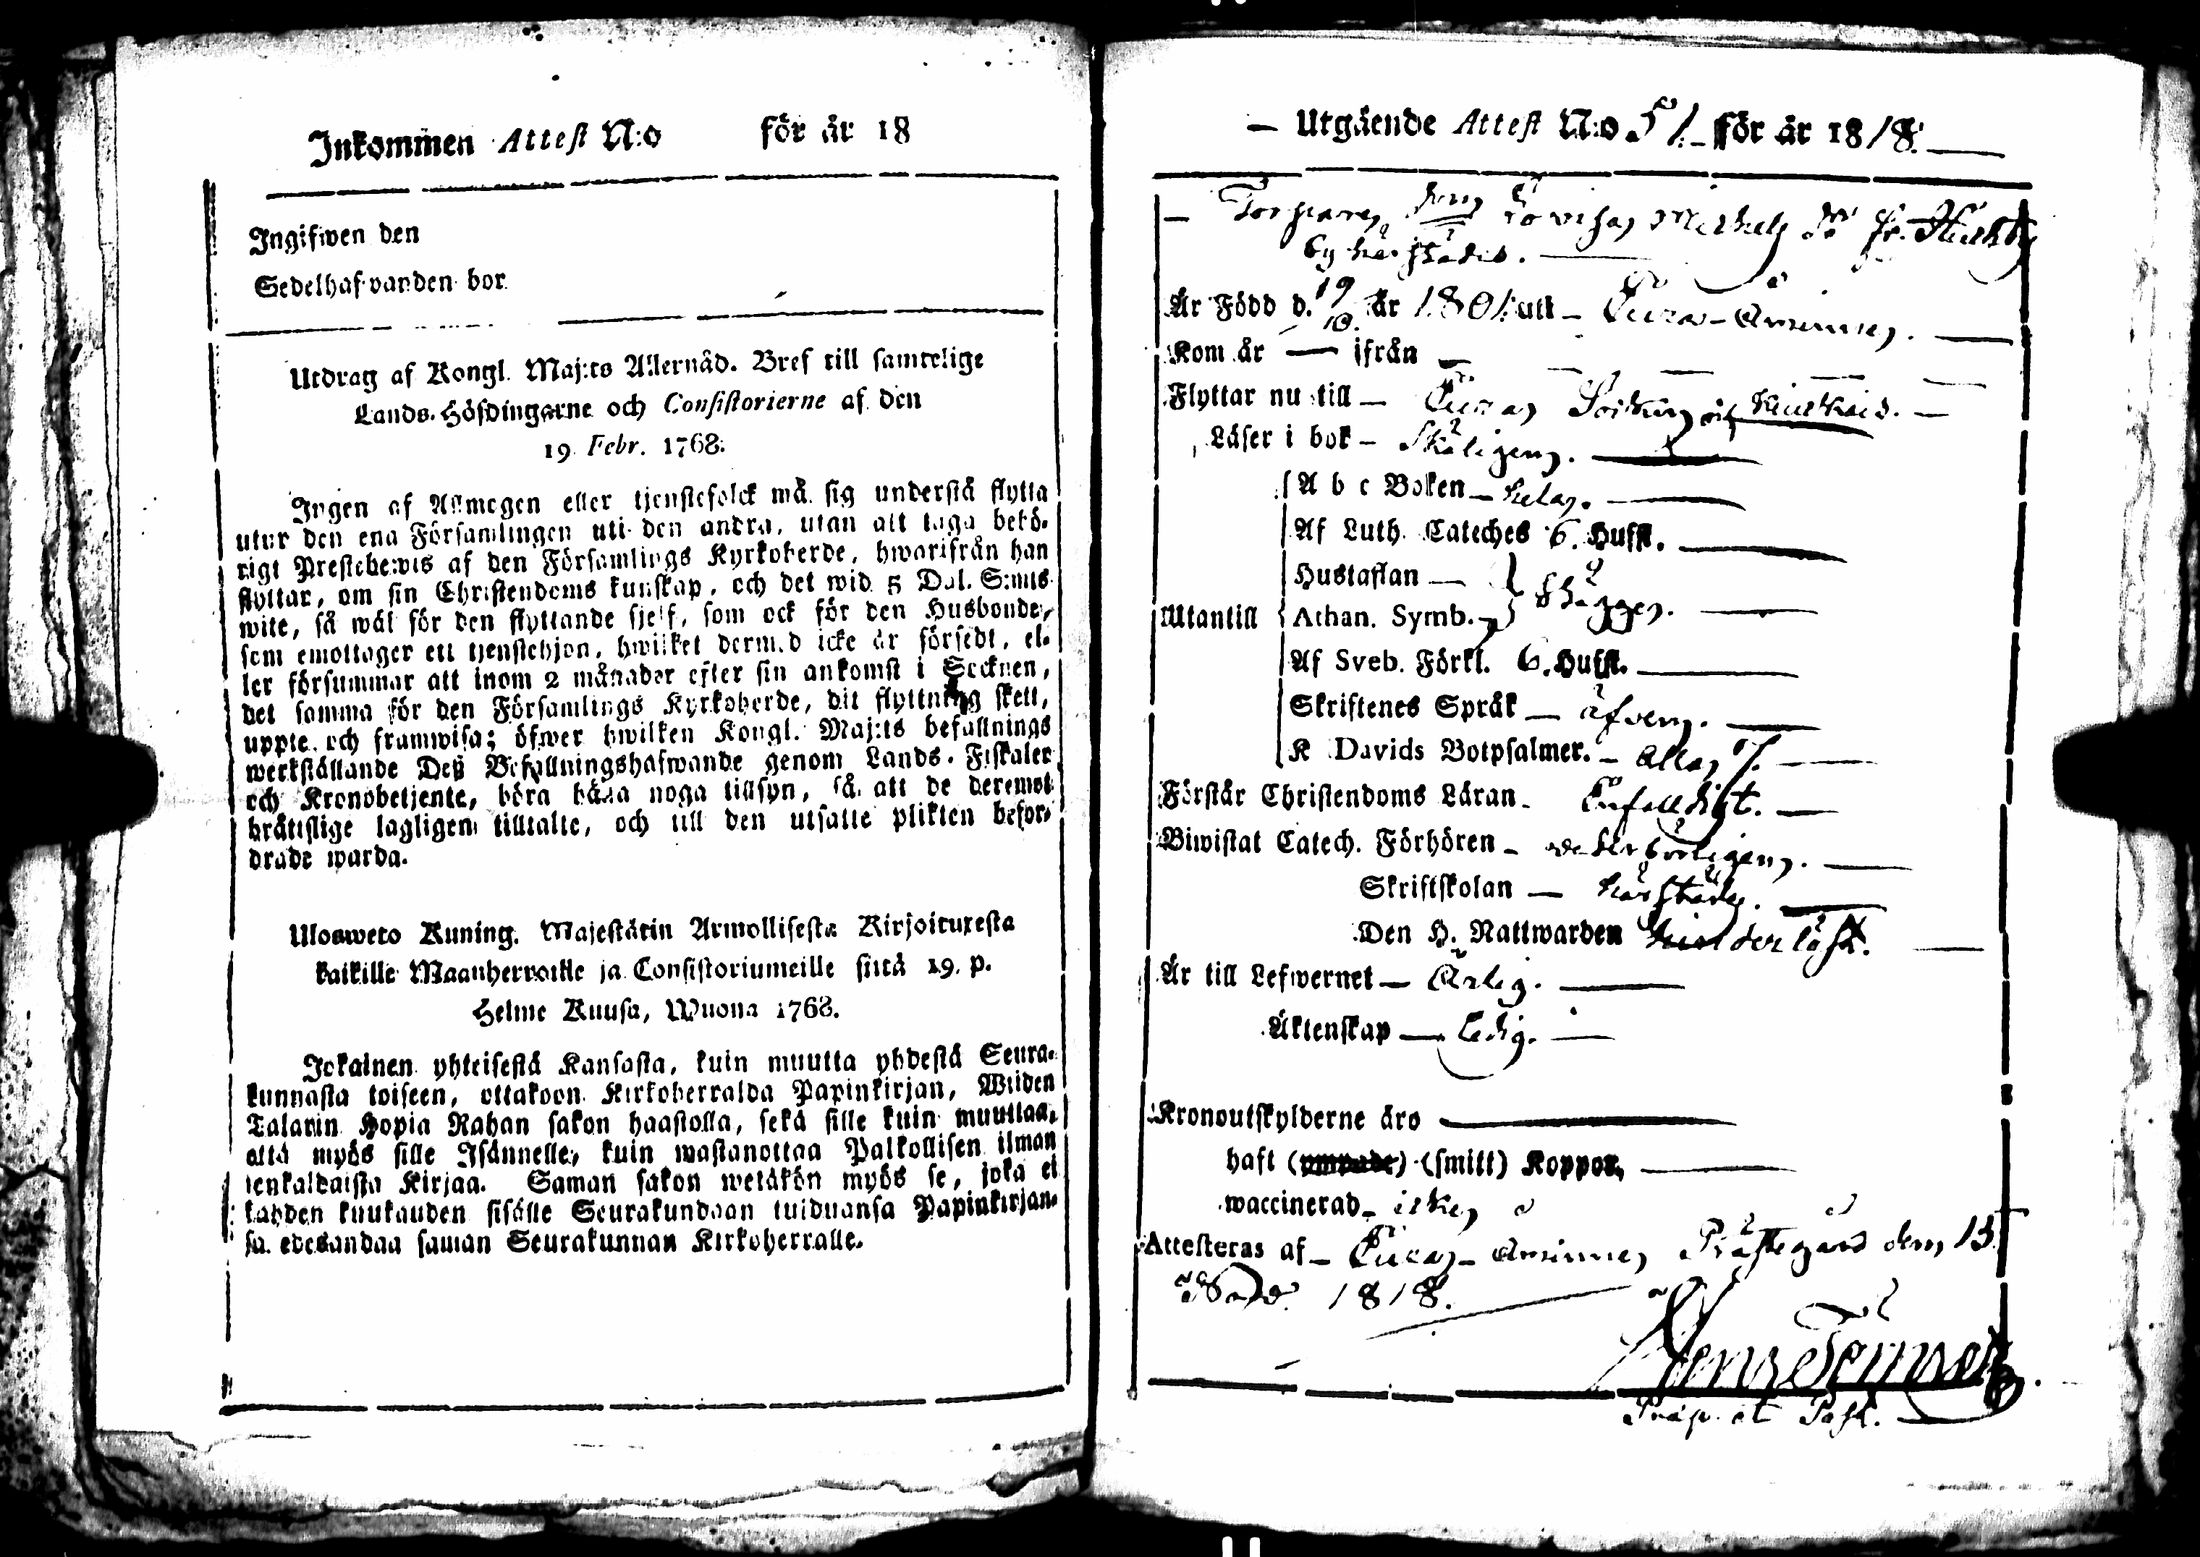 Inkommen Attest N:o för år 18
Ingifwen den
Sedelhafvanden bor
Utdrag af Kongl. Maj:ts Allernåd. Bref till samtelige
Lands-Höfdingarne och Consistorierne af den
19 Febr. 1768.
Ingen af Allmogen eller tjenstefolck må sig understå flytta
utur den ena Församlingen uti den andra, utan att taga behö-
rigt Prestebewis af den Församlings Kyrkoherde, hwarifrån han
flyttar, om sin Christendoms kunskap, och det wid 5 Dal. S:mts
wite, så wäl för den flyttande sjelf, som ock för den Husbonde,
som emottager ett tjenstehjon, hwilket dermed icke är försedt, el-
ler försummar att inom 2 månader efter sin ankomst i Socknen,
det samma för den Församlings Kyrkoherde, dit flyttning skett,
uppte och framwisa; öfwer hwilken Kongl. Maj:ts befallnings
werkställande Deß Befallningshafwande genom Lands-Fiskaler
och Kronobetjente, böra bära noga tillsyn, så att de deremot
brättslige lagligen tilltalte, och till den utsatte plikten befor-
drade warda.
Ulosweto Kuning. Majestätin Armollisesta Kirjoituxesta
kaikille Maanherroille ja Consistoriumeille siitä 19. p.
Helme Kuusa, Wuona 1768.
Jokainen yhteisestä Kansasta, kuin muutta yhdestä Seura-
kunnasta toiseen, ottakoon Kirkoherralda Papinkirjan, Wiiden
Talarin Hopia Rahan sakon haastolla, sekä sille kuin muuttaa,
että myös sille Isännelle, kuin wastanottaa Palkollisen ilman
senkaldaista Kirjaa. Saman sakon wetäkön myös se, joka ei
kahden kuukauden sisälle Seurakundaan tulduansa Papinkirjan-
sa edesandaa saman Seurakunnan Kirkoherralle.
— Utgående Attest N:o 51. för år 1818. —
— Lovisa Michels dr fr.
by härstädes. —
Är Född d. 19/10. år 1801. uti —
Kom år — ifrån —
Flyttar nu till —
Läser i bok — Skäligen. —
A b c Boken — hela. —
Af Luth. Cateches 6. Hufst. —
Hustaflan —
Utantill Athan. Symb. — begge. —
Af Sveb. Förkl. 6. Hufst. —
Skriftenes Språk — äfven. —
K Davids Botpsalmer. — alla 7. —
Förstår Christendoms Läran — Enfaldigt. —
Biwistat Catech. Förhören — vederbörligen. —
Skriftskolan — härstädes. —
Den H. Nattwarden hinderlöst. —
Är till Lefwernet — Ärlig. —
Äktenskap — Ledig. —
Kronoutskylderne äro —
haft () (smitt) Koppor, —
waccinerad — icke
Attesteras af — Prästegård den 13.
1818.
Præp. et Past.